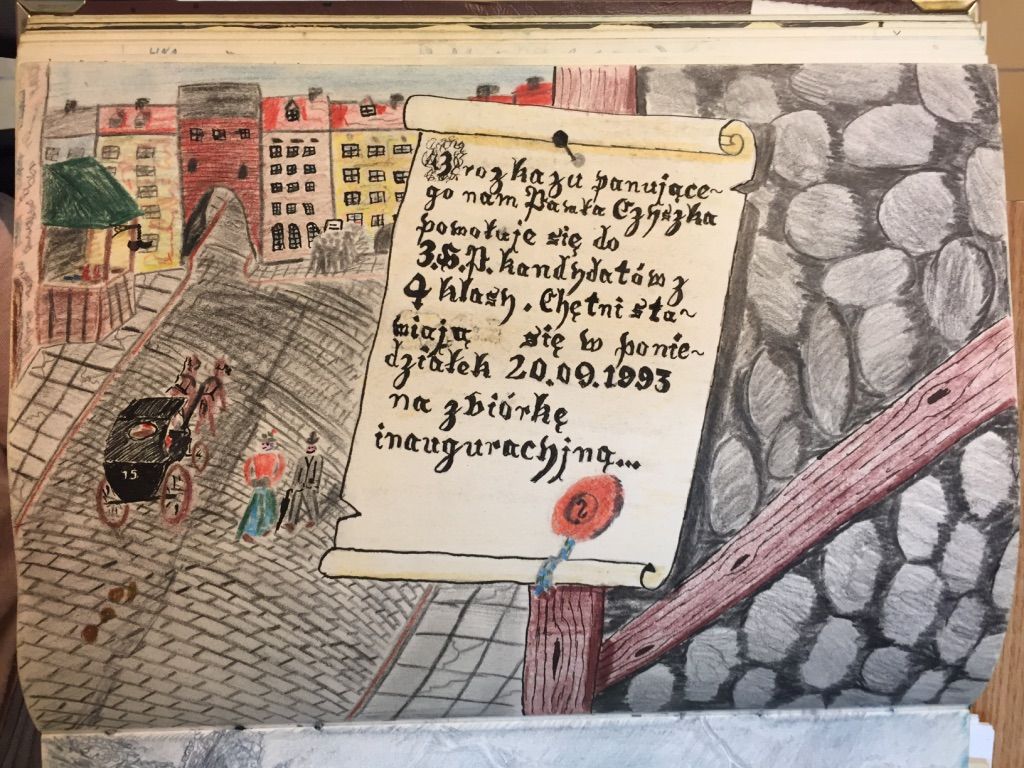 LINA
Z rozkazu panujące~
go nam Pawła Czyszka
powołuje się do
3.S.P. kandydatów z
4 klasy. Chętni sta~
wiają się w ponie~
działek 20.09.1993
na zbiórkę
inauguracyjną...
15